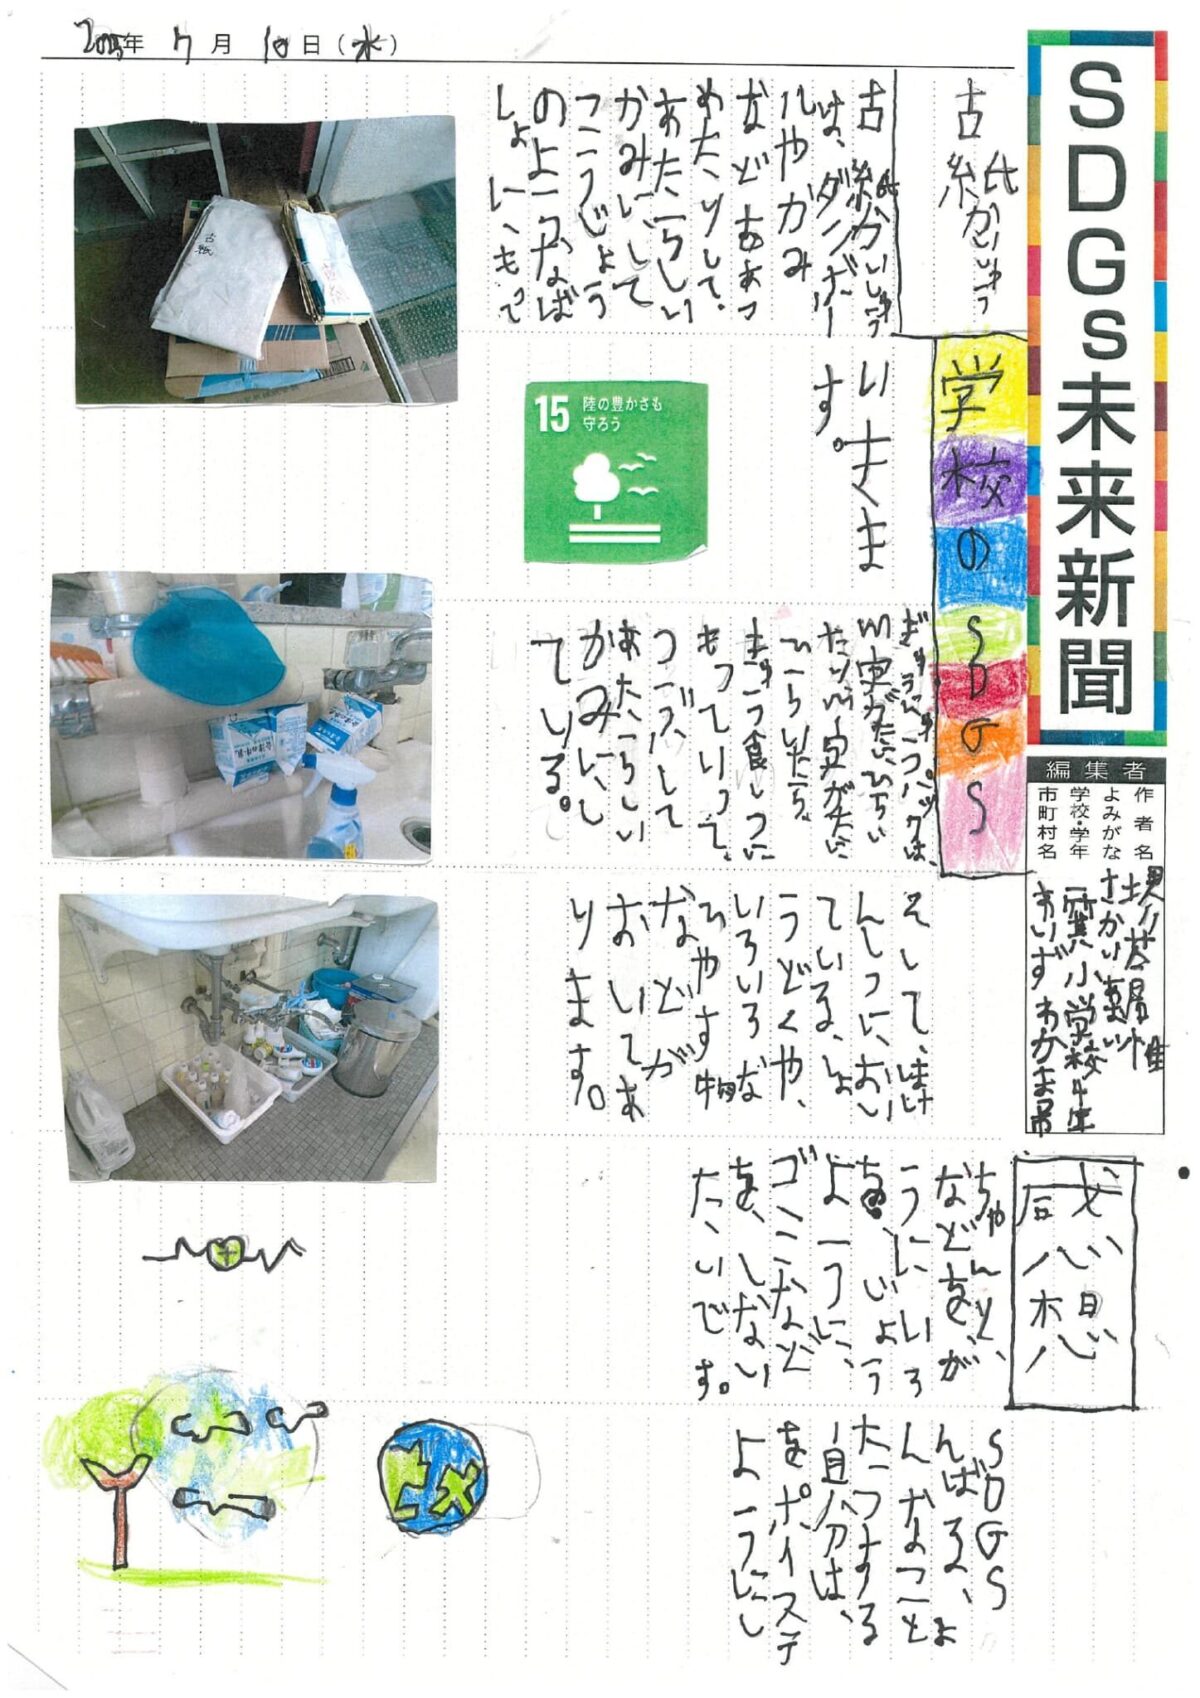 年7月10日(水)
SDGs未来新聞
編集者
作者名
よみがな さかい
学校・学年 一箕小学校4年
市町村名 あいずわかま市
古紙かいしゅう
古紙かいしゅう
は、ダンボー
ルやかみ
などをあつ
めたりして、
あたらしい
かみにして
こうじょう
のようなば
しょに、もって
いきま
す。
古紙
15 陸の豊かさも
守ろう
学校のSDGS
ぎゅうにゅうパックは、
ひらいたら、
きゅう食しつに
もっていって、
つぶして
あたらしい
かみにし
ている。
そして、ほけ
んしつに、おい
ている、しょ
うどくや、
いろいろな
ひやす物
などが
おいてあ
ります。
感想
ちゃんと、SDGS
などを、がんばる、よ
うに、いろんなこと
を、いようたっする
ように、自分は、
ゴミなどをポイステ
を、しないようにし
たいです。